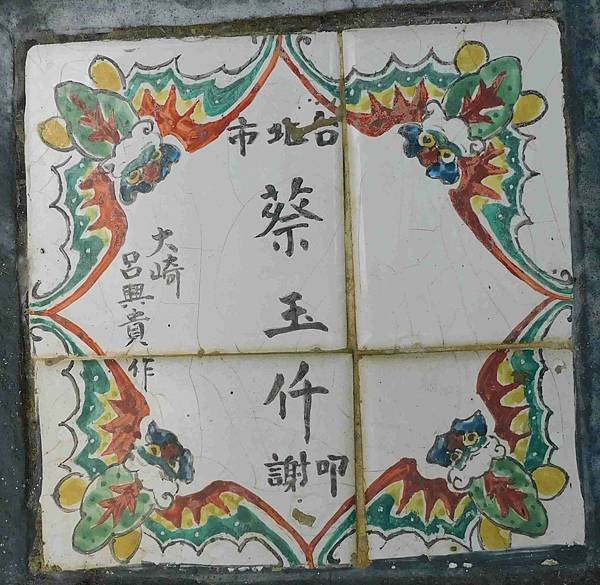 台北市
蔡玉仟
叩謝
大崎
呂興貴作